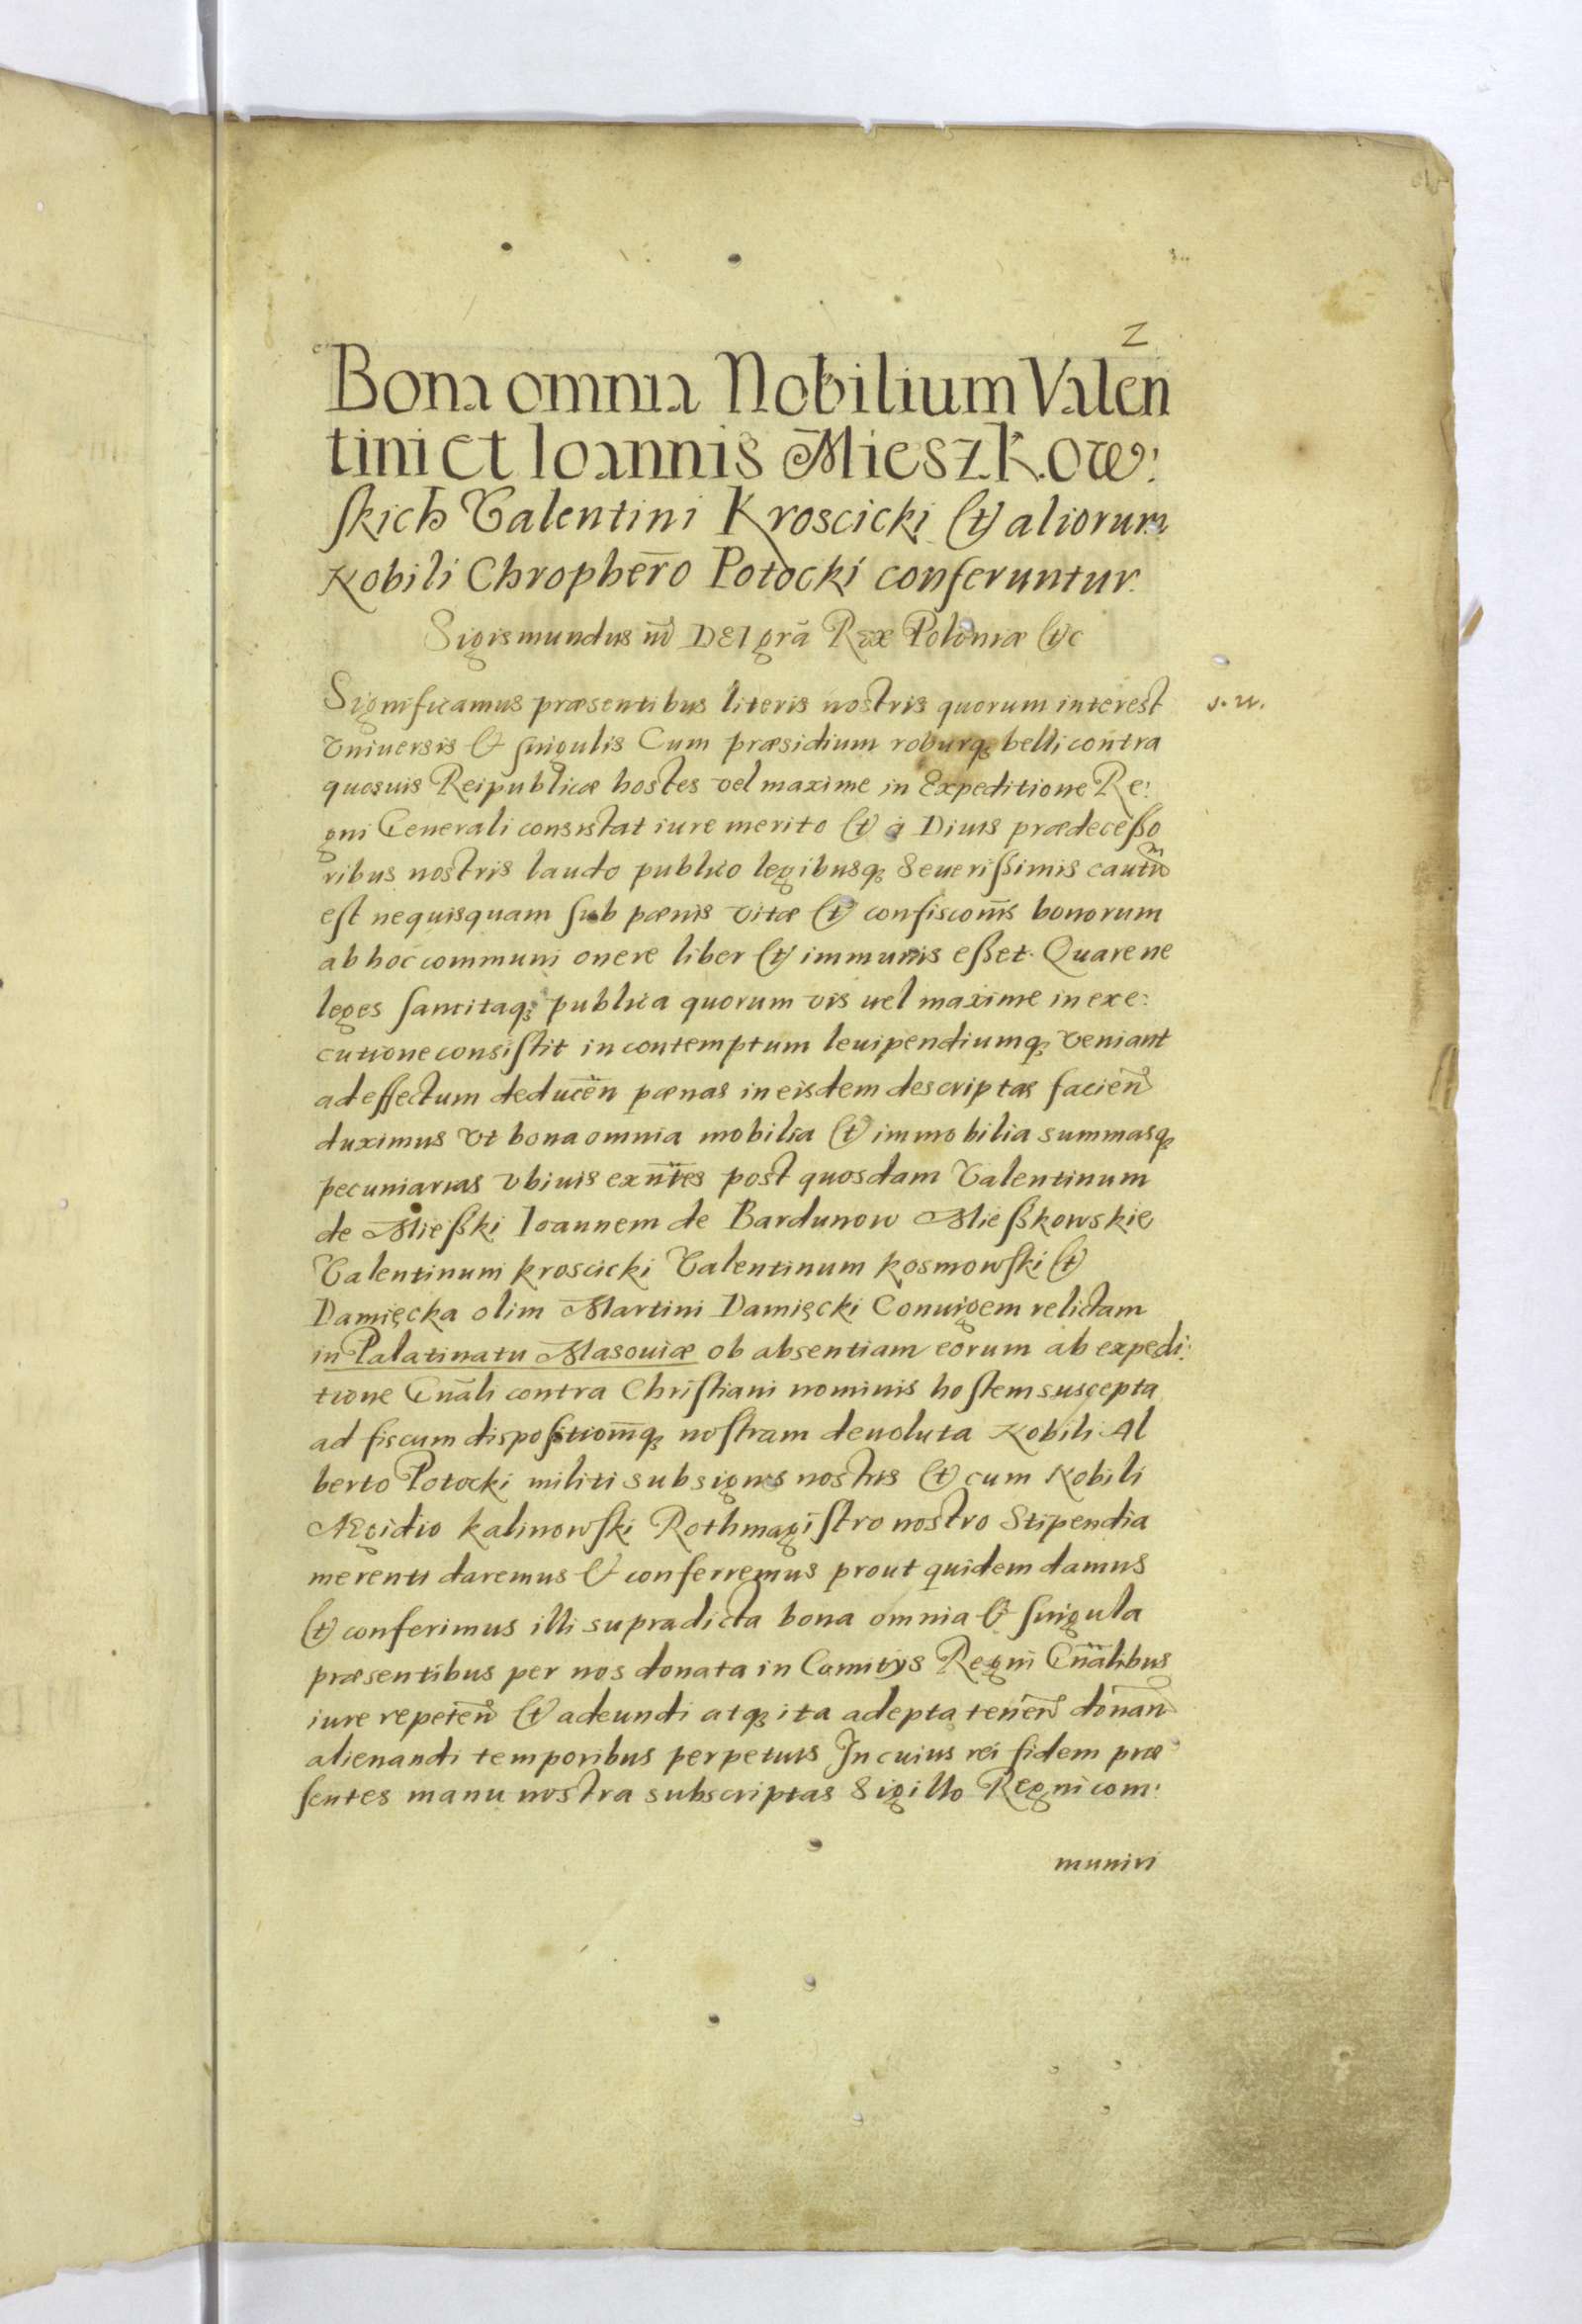 2
Bona omnia Nobilium Valen
tini et Ioannis Mieszkow:
skich Valentini Kroscicki et aliorum
Nobili Chrophero Potocki conferuntur.
Sigismundus iii DEI grã Rex Poloniæ etc
Significamus præsentibus literis nostris quorum interest
Vniuersis & singulis Cum præsidium roburq; belli contra
quosuis Reipublicæ hostes vel maxime in Expeditione Re:
gni Generali consistat iure merito et à Diuis prædecesso
ribus nostris laudo publico legibusq; Seuerissimis cautũ
est nequisquam sub pænis vitæ et confiscoñis bonorum
ab hoc communi onere liber et immunis esset. Quare ne
leges sancitaq; publica quorum vis uel maxime in exe:
cutione consistit in contemptum leuipendiumq; veniant
ad effectum deduceñ pænas in eisdem descriptas facieñ
duximus Vt bona omnia mobilia et immobilia summasq;
pecuniarias vbiuis exñtes post quosdam Valentinum
de Mießki Ioannem de Bardunow Mießkowskie
Valentinum kroscicki Valentinum kosmowski et
Damięcka olim Martini Damięcki Coniugem relictam
in Palatinatu Masouiæ ob absentiam eorum ab expedi:
tione Gñali contra Christiani nominis hostem suscepta
ad fiscum dispositiomq; nostram deuoluta Nobili Al
berto Potocki militi sub signis nostris et cum Nobili
AEgidio kalinowski Rothmagistro nostro Stipendia
merenti daremus & conferremus prout quidem damus
et conferimus illi supradicta bona omnia & singula
præsentibus per nos donata in Comitys Regni Gñalibus
iure repeteñ et adeundi atq; ita adepta teneñ donañ
alienandi temporibus perpetuis In cuius rei fidem præ
sentes manu nostra subscriptas Sigillo Regni com:
muniri